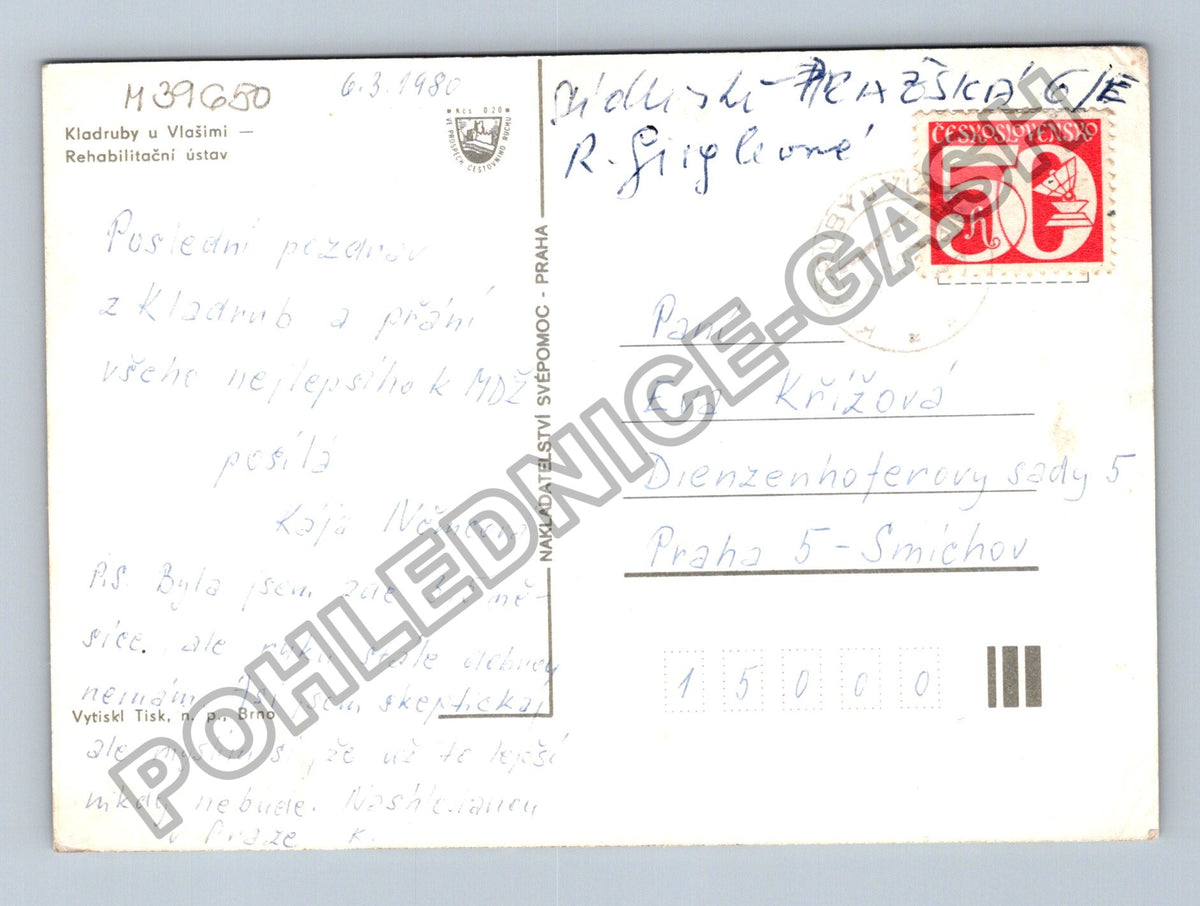 M 39650
6.3.1980
Kladruby u Vlašimi —
Rehabilitační ústav
Kčs 0,20
VE PROSPĚCH CESTOVNÍHO RUCHU
Poslední pozdrav
z Kladrub a přání
všeho nejlepšího k MDŽ
posílá
Kája
P.S. Byla jsem zde
síce, ale ruku stále dobrou
nemám. jsem skeptická,
ale myslím si, že už to lepší
nikdy nebude. Nashledanou
v Praze K.
Vytiskl Tisk, n. p., Brno
NAKLADATELSTVÍ SVÉPOMOC - PRAHA
PRAŽSKÁ 6/E
R.
ČESKOSLOVENSKO
50
Paní
Eva Křížová
Dienzenhoferovy sady 5
Praha 5 - Smíchov
15000
POHLEDNICE-GASH